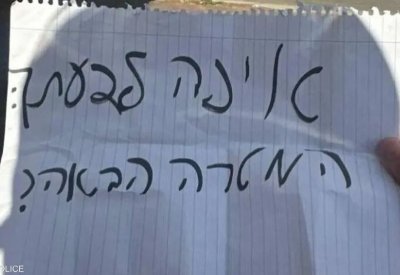 איפה לדעתך:
המטרה הבאה?
OLICE